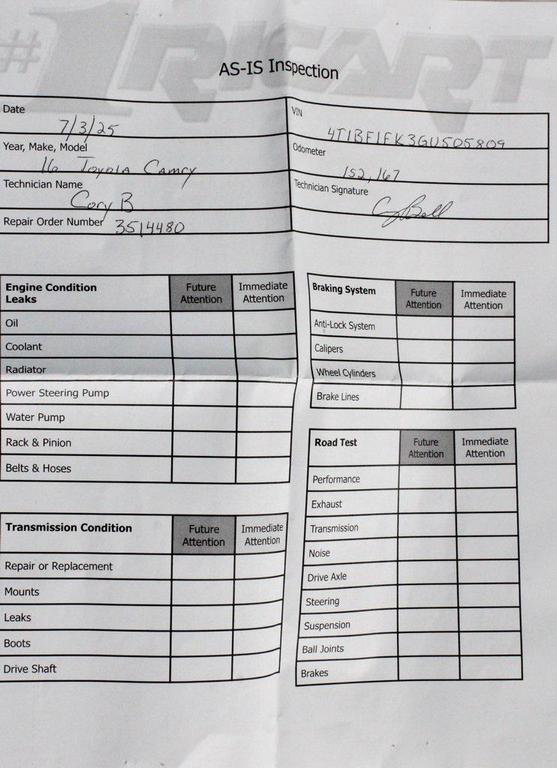 #1 RICART
AS-IS Inspection
Date 7/3/25
VIN 4T1BF1FK3GU505809
Year, Make, Model 16 Toyota Camry
Odometer 152,167
Technician Name Cory B
Technician Signature
Repair Order Number 3514480
Engine Condition Leaks Future Attention Immediate Attention
Oil
Coolant
Radiator
Power Steering Pump
Water Pump
Rack & Pinion
Belts & Hoses
Transmission Condition Future Attention Immediate Attention
Repair or Replacement
Mounts
Leaks
Boots
Drive Shaft
Braking System Future Attention Immediate Attention
Anti-Lock System
Calipers
Wheel Cylinders
Brake Lines
Road Test Future Attention Immediate Attention
Performance
Exhaust
Transmission
Noise
Drive Axle
Steering
Suspension
Ball Joints
Brakes